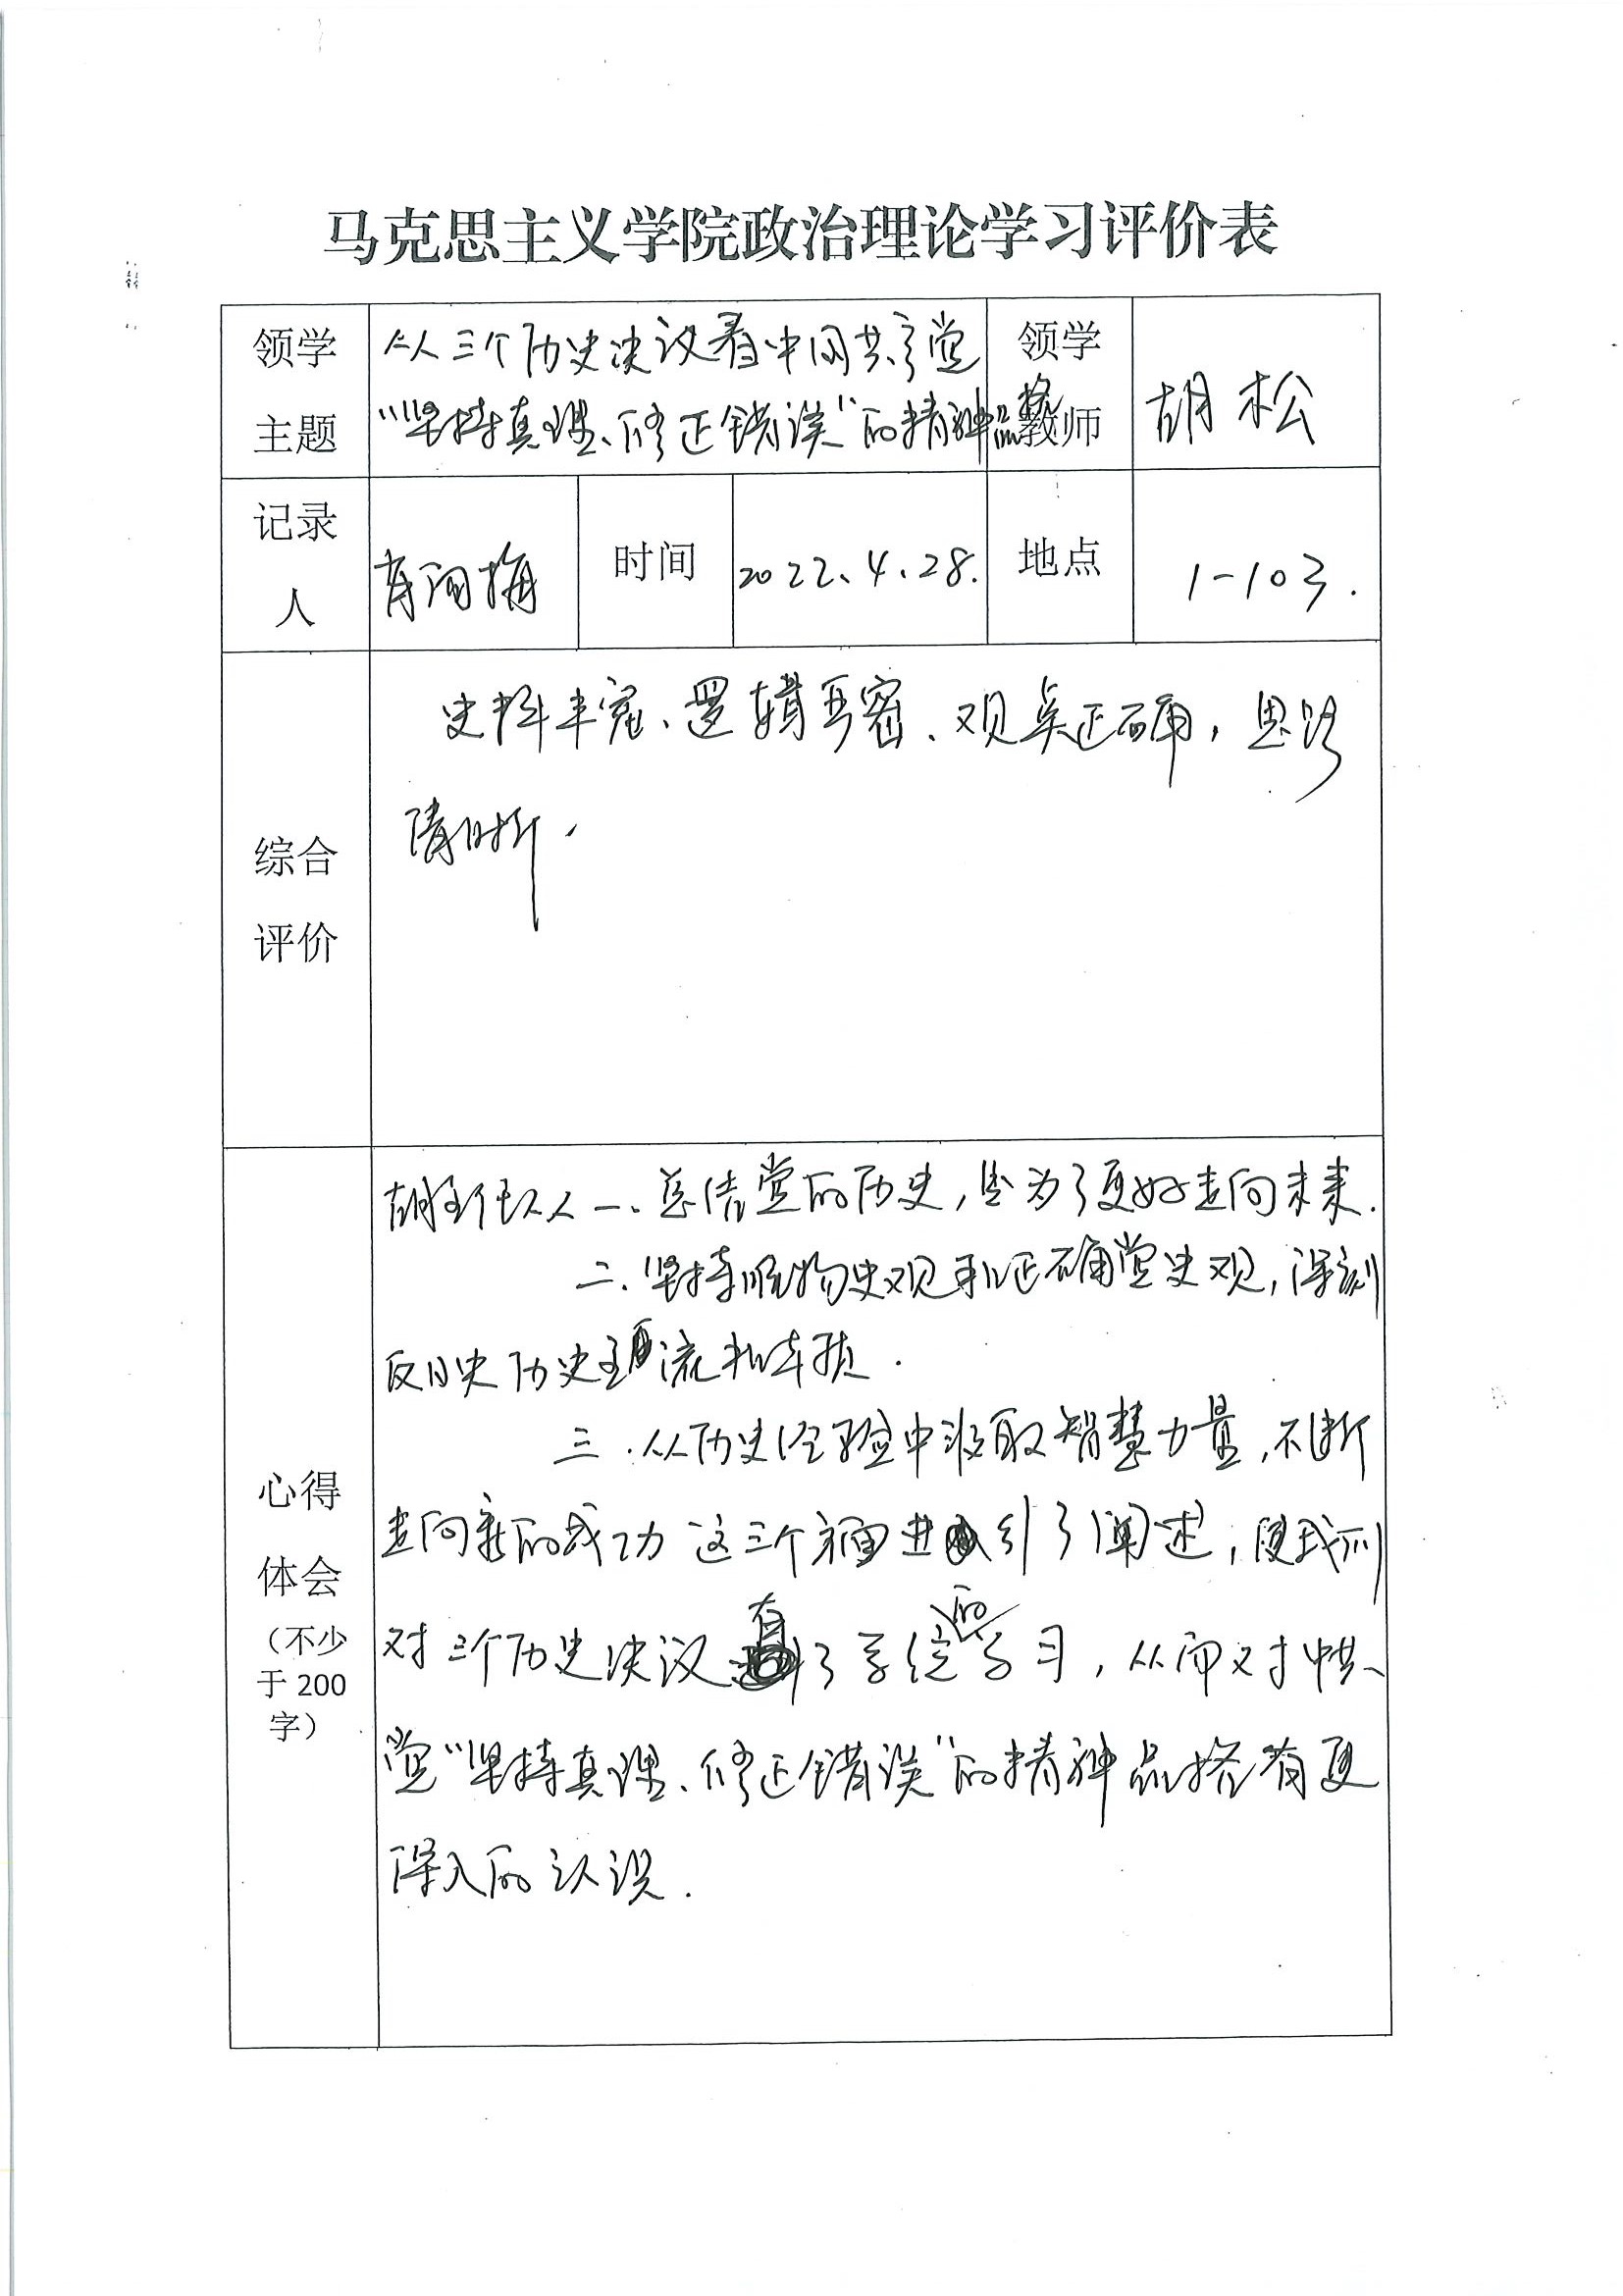 马克思主义学院政治理论学习评价表
领学 从三个历史决议看中国共产党 领学
主题 “坚持真理、修正错误”的精神品格 教师 胡松
记录
人 时间 2022、4、28. 地点 1-103.
史料丰富、逻辑严密、观点正确，思路
清晰.
综合
评价
胡主任从 一、总结党的历史，是为了更好走向未来.
二、坚持唯物史观和正确党史观，深刻
反映史历史主流和本质.
三.从历史经验中汲取智慧力量，不断
走向新的成功 这三个方面进行了阐述，使我们
对三个历史决议有了系统的学习，从而对中共
党“坚持真理、修正错误”的精神品格有更
深入的认识.
心得
体会
（不少
于 200
字）